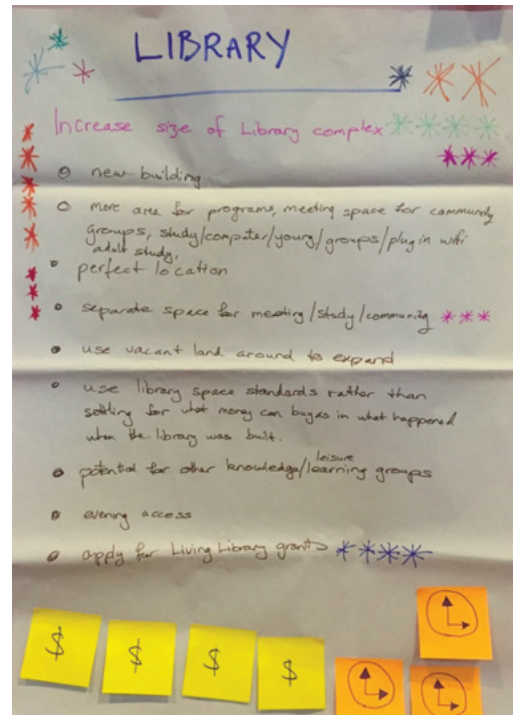 LIBRARY
Increase size of Library complex
new building
more area for programs, meeting space for community
groups, study/computer/young/groups/plug in wifi
adult study,
perfect location
separate space for meeting/study/community
use vacant land around to expand
use library space standards rather than
settling for what money can buy as in what happened
when the library was built.
leisure
potential for other knowledge/learning groups
evening access
apply for Living Library grants
$ $ $ $